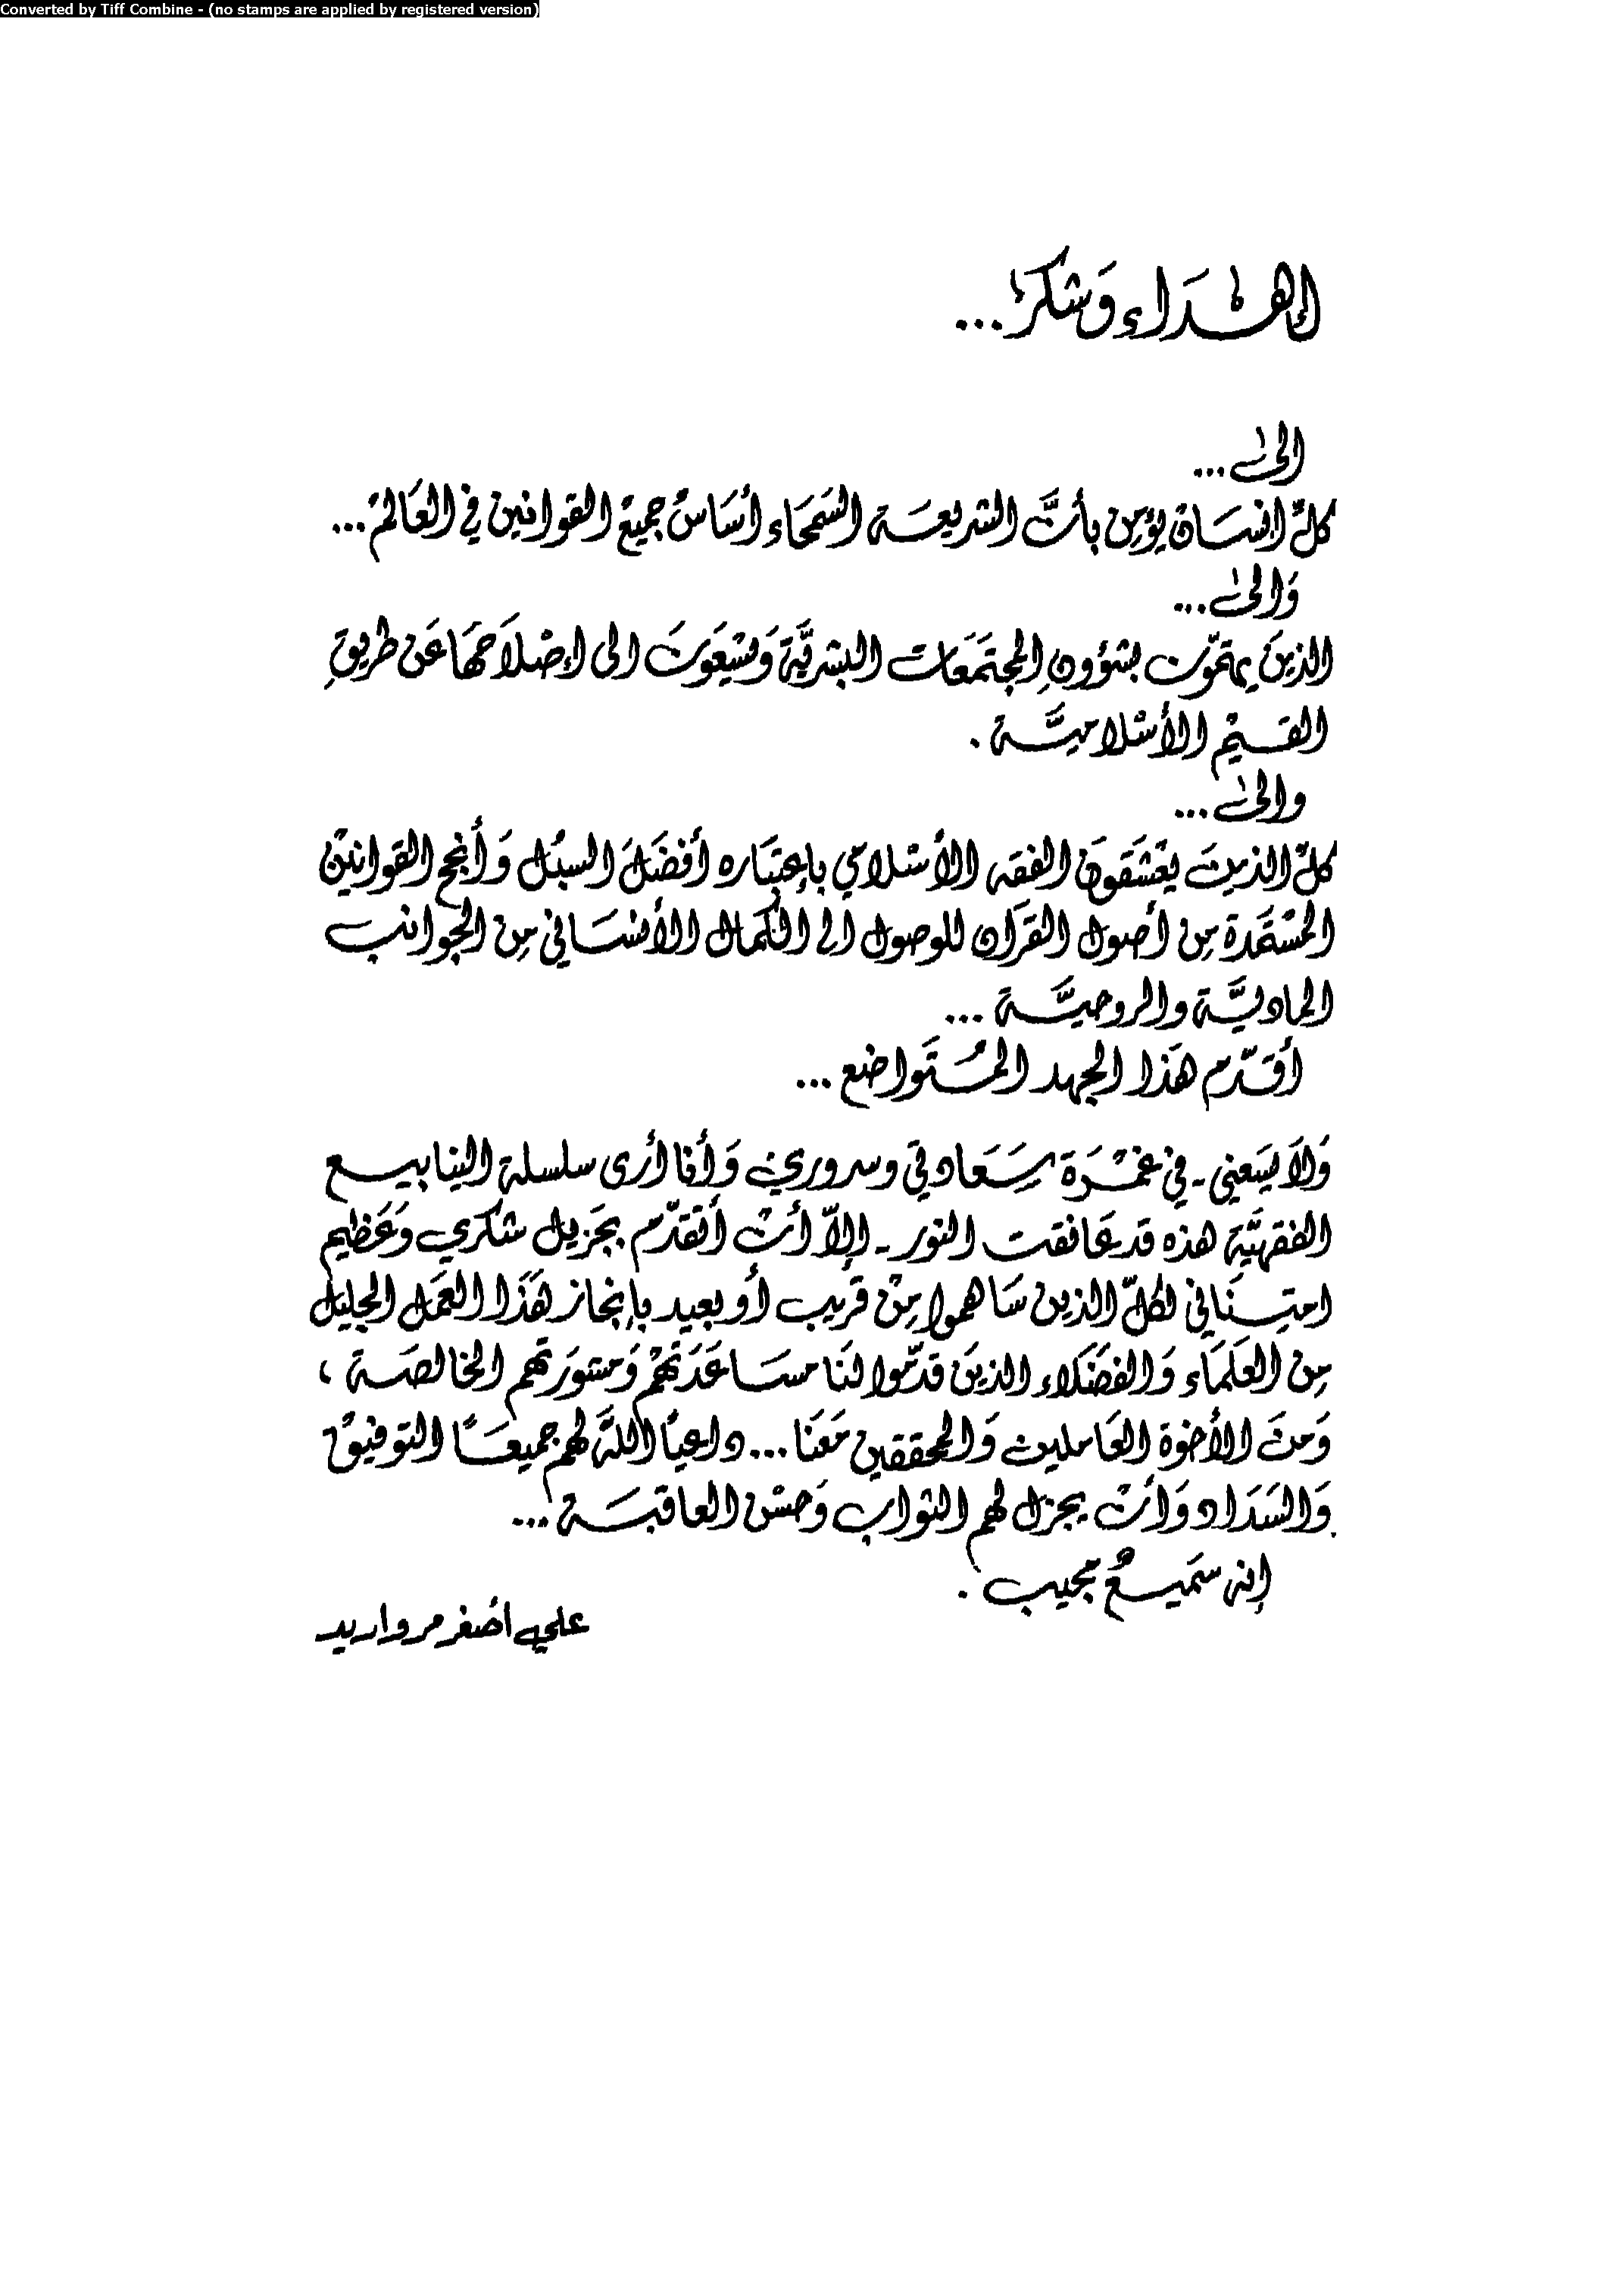 Converted by Tiff Combine - (no stamps are applied by registered version)
إهداء وَشكر ...
الىٰ ...
كلّ انسَان يؤمِن بأنَّ الشريعَة السَمحَاء أسَاسُ جميع القوانين في العَالم ...
وَالىٰ ...
الذينَ يهتمّون بشؤونِ المجتَمَعَات البشريَّة وَيسْعَونَ الى إصْلاَحهَا عَن طريقِ
القيَم الأسْلاميَّة .
والىٰ ...
كلّ الذينَ يَعْشَقونَ الفقه الأسْلامي بإعتبَاره أفضَلَ السبُل وَأنجح القوانين
المسْتمَدة مِن أصول القرآن للوصول الى الكمال الأنسَاني مِن الجوانب
الماديَّة والروحيَّة ...
أقدّم هَذا الجهد المتَواضع ...
وَلاَ يسَعني - في غمْرَة سَعَادتي وسروري وَأنا أرى سلسلة الينابيع
الفقهيَّة هذه قد عَانقت النور - إلاّ أنْ أتقدّم بجَزيل شكري وَعَظيم
امتِنَاني لكلّ الذين سَاهموا مِنْ قَريب أو بعيد بإنجاز هَذَا العَمَل الجليل
مِن العلَمَاء وَالفضَلاء الذينَ قدّموا لنَا مسَاعَدَتَهُمْ وَمشورَتهم الخالصَة ،
وَمنَ الأخوة العَاملين وَالمحققين مَعَنا ... داعياً اللّهَ لهم جميعَاً التوفيق
وَالسَدَاد وَأنْ يجزل لهم الثواب وَحسْن العاقبَة ...
إنه سَميعٌ مجيب .
علي اصْغر مرواريد